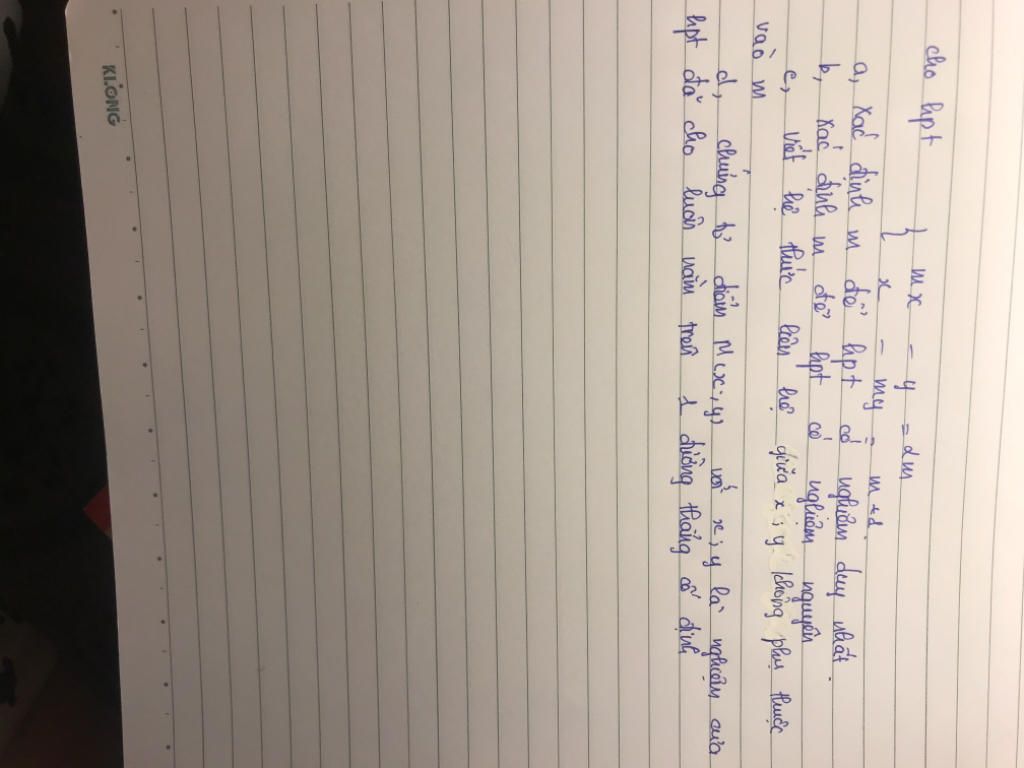 cho hpt { mx - y = 2m
x - my = m+1
a, Xác định m để hpt có nghiệm duy nhất.
b, Xác định m để hpt có nghiệm nguyên
c, viết hệ thức liên hệ giữa x; y không phụ thuộc
vào m
d, chứng tỏ điểm M(x; y) với x; y là nghiệm của
hpt đã cho luôn nằm trên 1 đường thẳng cố định
KLONG